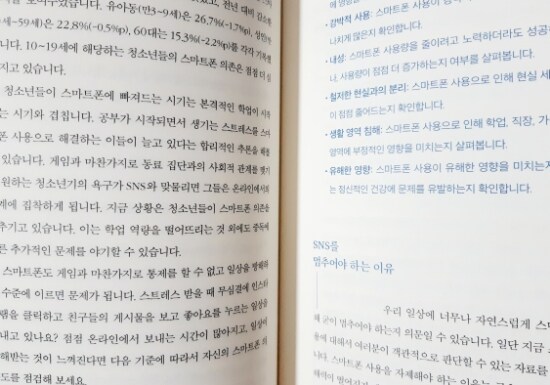 보여주었습니다. 유아동(만3~9세)은 26.7%(-1.7%p), 성인(만
~59세)은 22.8%(-0.5%p), 60대는 15.3%(-2.2%p)를 각각 기록했
니다. 10~19세에 해당하는 청소년들의 스마트폰 의존은 점점 더 심
지고 있습니다.
청소년들이 스마트폰에 빠져드는 시기는 본격적인 학업이 시작
는 시기와 겹칩니다. 공부가 시작되면서 생기는 스트레스를 스마
폰 사용으로 해결하는 이들이 늘고 있다는 합리적인 추론을 해볼
있습니다. 게임과 마찬가지로 동료 집단과의 사회적 관계를 맺기
원하는 청소년기의 욕구가 SNS와 맞물리면 그들은 온라인에서의
계에 집착하게 됩니다. 지금 상황은 청소년들이 스마트폰 의존을
추기고 있습니다. 이는 학업 역량을 떨어뜨리는 것 외에도 중독에
른 추가적인 문제를 야기할 수 있습니다.
스마트폰도 게임과 마찬가지로 통제를 할 수 없고 일상을 방해하
수준에 이르면 문제가 됩니다. 스트레스 받을 때 무심결에 인스타
램을 클릭하고 친구들의 게시물을 보고 좋아요를 누르는 일상을
내고 있나요? 점점 온라인에서 보내는 시간이 많아지고, 일상에
해받는 것이 느껴진다면 다음 기준에 따라서 자신의 스마트폰 의
도를 점검해 보세요.
• 강박적 사용: 스마트폰 사용에 대한
나치게 많은지 확인합니다.
• 내성: 스마트폰 사용량을 줄이려고 노력하더라도 성공하
나, 사용량이 점점 더 증가하는지 여부를 살펴봅니다.
• 철저한 현실과의 분리: 스마트폰 사용으로 인해 현실 세
이 점점 줄어드는지 확인합니다.
• 생활 영역 침해: 스마트폰 사용으로 인해 학업, 직장, 가
영역에 부정적인 영향을 미치는지 살펴봅니다.
• 유해한 영향: 스마트폰 사용이 유해한 영향을 미치는지
는 정신적인 건강에 문제를 유발하는지 확인합니다.
SNS를
멈추어야 하는 이유
우리 일상에 너무나 자연스럽게 스
왜 굳이 멈추어야 하는지 의문일 수 있습니다. 일단 지금
용에 대해서 여러분이 객관적으로 판단할 수 있는 자료를
니다. 스마트폰 사용을 자제해야 하는 이유는